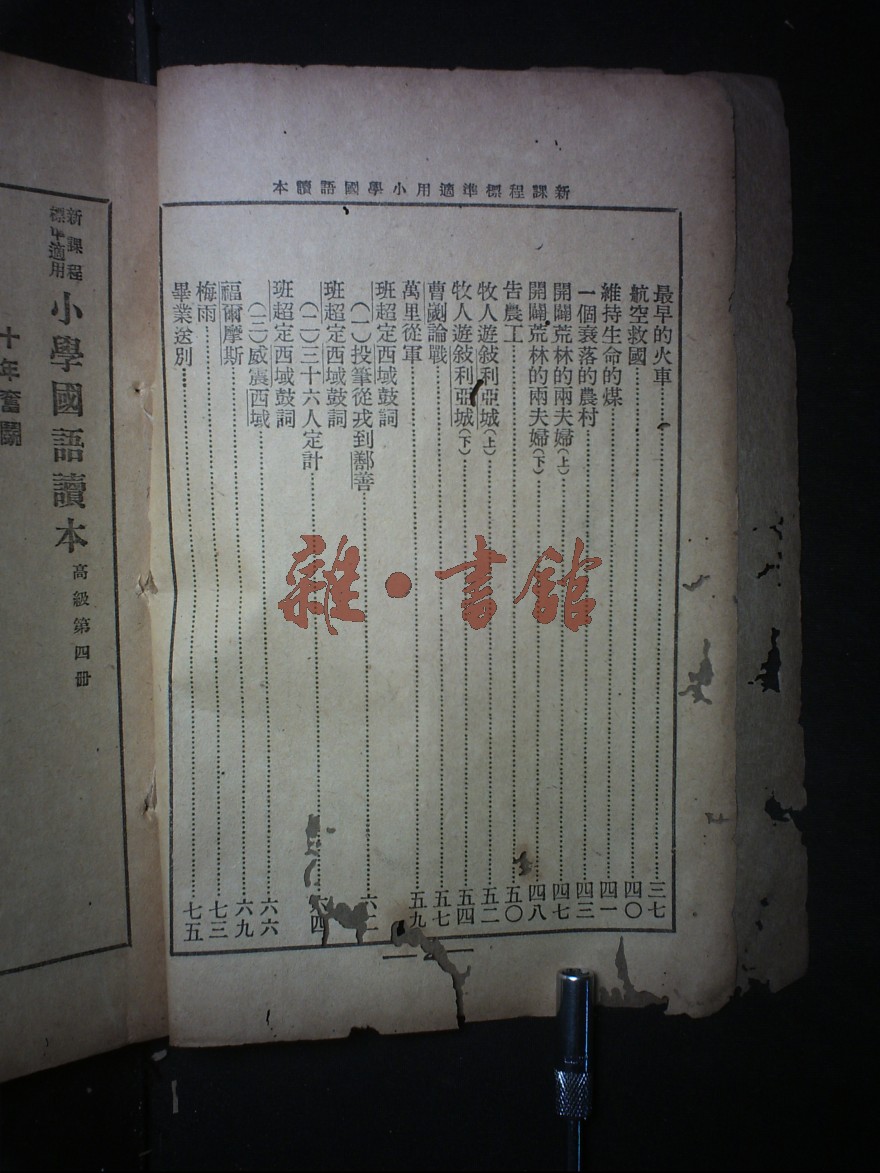 新課程標準適用小學國語讀本
最早的火車……三七
航空救國……四〇
維持生命的煤……四一
一個衰落的農村……四三
開闢荒林的兩夫婦(上)……四七
開闢荒林的兩夫婦(下)……四八
告農工……五〇
牧人遊敍利亞城(上)……五二
牧人遊敍利亞城(下)……五四
曹劌論戰……五七
萬里從軍……五九
班超定西域鼓詞
(一)投筆從戎到鄯善……六
班超定西域鼓詞
(二)三十六人定計……四
班超定西域鼓詞
(三)威震西域……六六
福爾摩斯……六九
梅雨……七三
畢業送別……七五
新課程標準適用
小學國語讀本
高級第四册
十年奮鬭
雜·書館